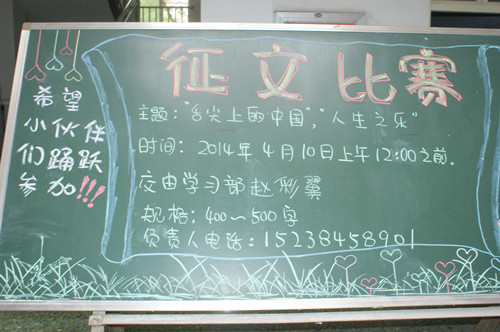 征文比赛
希望
小伙伴
们踊跃
参加!!!
主题："舌尖上的中国"，"人生之乐"
时间：2014年4月10日上午12:00之前.
交由学习部赵彩翼
规格：400～500字
负责人电话：15238458901